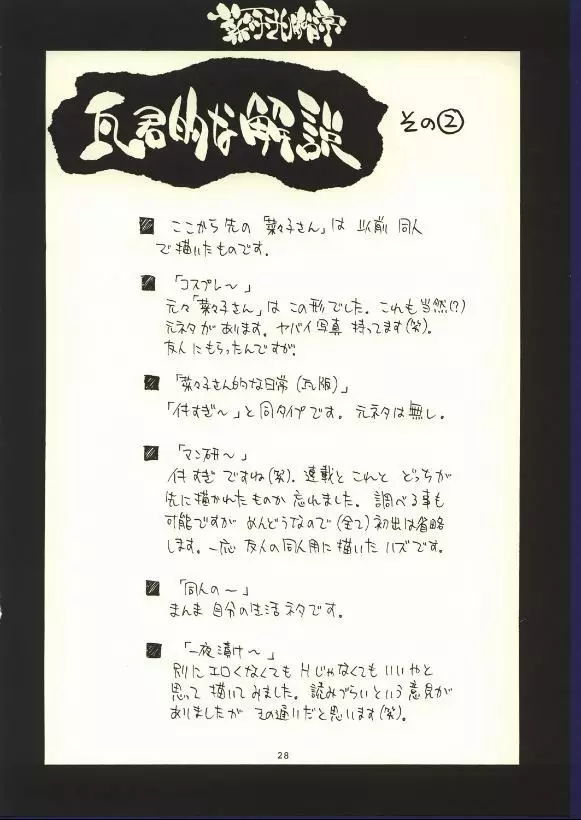 瓦君的な解説 その②
■ ここから先の「菜々子さん」は 以前 同人
で描いたものです。
■ 「コスプレ〜」
元々「菜々子さん」は この形でした。これも当然(?)
元ネタがあります。ヤバイ写真 持ってます(笑)。
友人にもらったんですが。
■ 「菜々子さん的な日常(瓦版)」
「付すぎ〜」と同タイプです。元ネタは無し。
■ 「マン研〜」
付すぎですね(笑)。連載とこれと どっちが
先に描かれたものか忘れました。調べる事も
可能ですが めんどうなので(全て)初出は省略
します。一応 友人の同人用に描いたハズです。
■ 「同人の〜」
まんま 自分の生活ネタです。
■ 「一夜漬け〜」
別に エロくなくても Hじゃなくても いいやと
思って 描いてみました。読みづらいという意見が
ありましたが その通りだと思います(笑)。
28